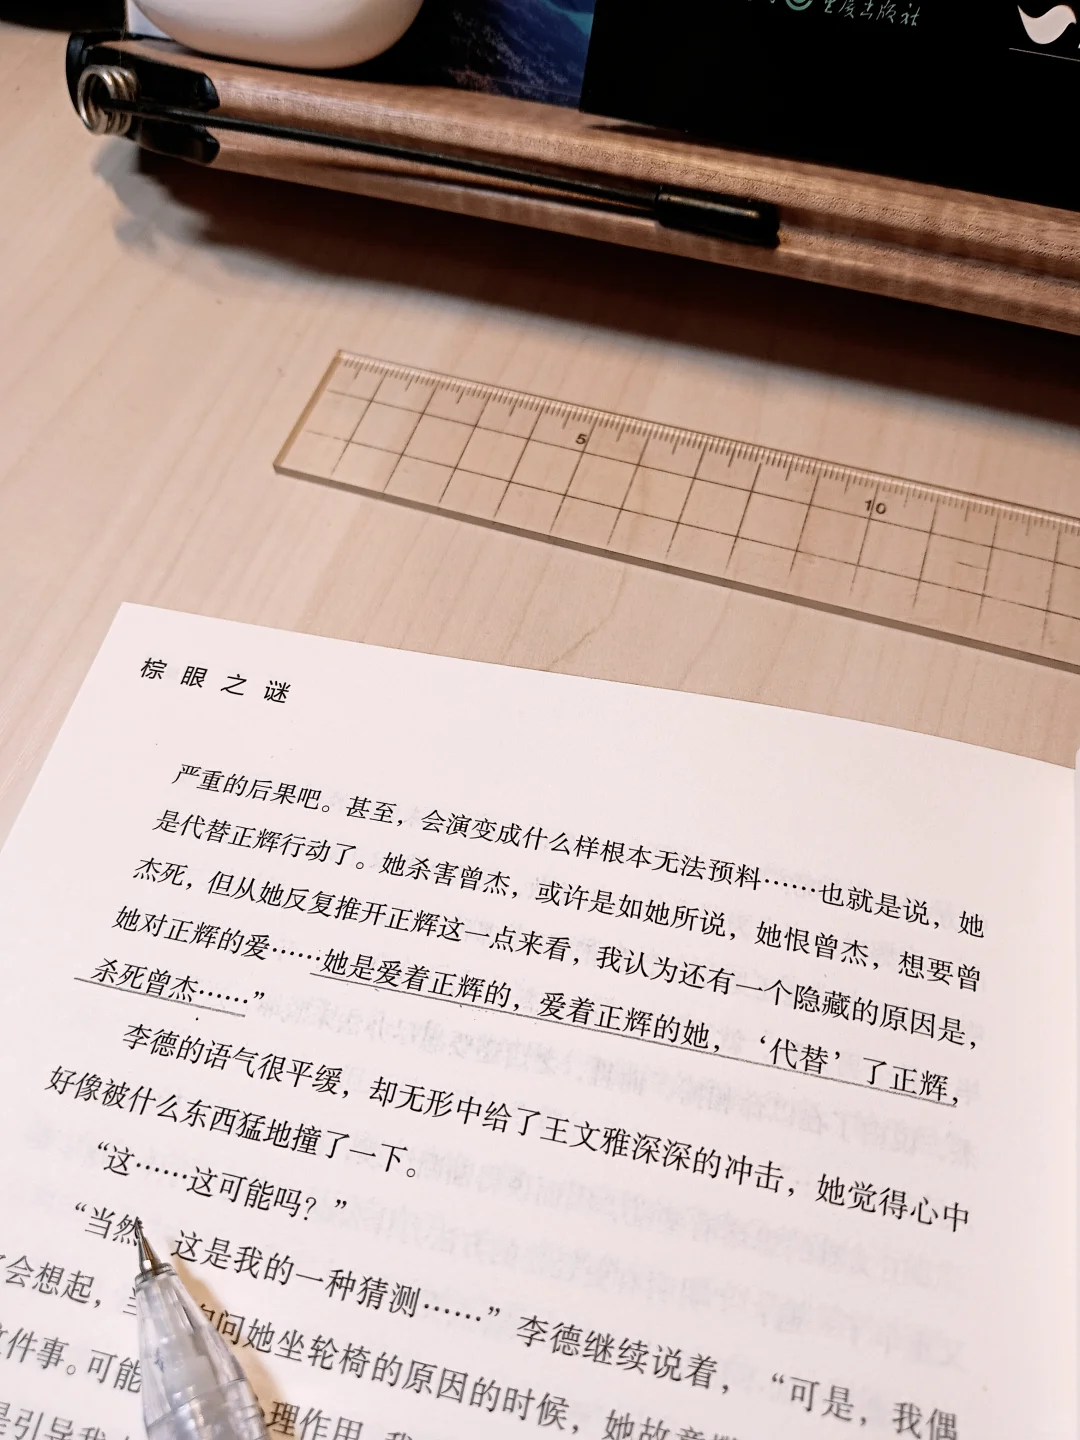 重庆出版社
5
10
棕眼之谜
严重的后果吧。甚至，会演变成什么样根本无法预料……也就是说，她
是代替正辉行动了。她杀害曾杰，或许是如她所说，她恨曾杰，想要曾
杰死，但从她反复推开正辉这一点来看，我认为还有一个隐藏的原因是，
她对正辉的爱……她是爱着正辉的，爱着正辉的她，‘代替’了正辉，
杀死曾杰……”
李德的语气很平缓，却无形中给了王文雅深深的冲击，她觉得心中
好像被什么东西猛地撞了一下。
“这……这可能吗？”
“当然 这是我的一种猜测……”李德继续说着，“可是，我偶
会想起， 问她坐轮椅的原因的时候，她故意
件事。可能 理作用
是引导我